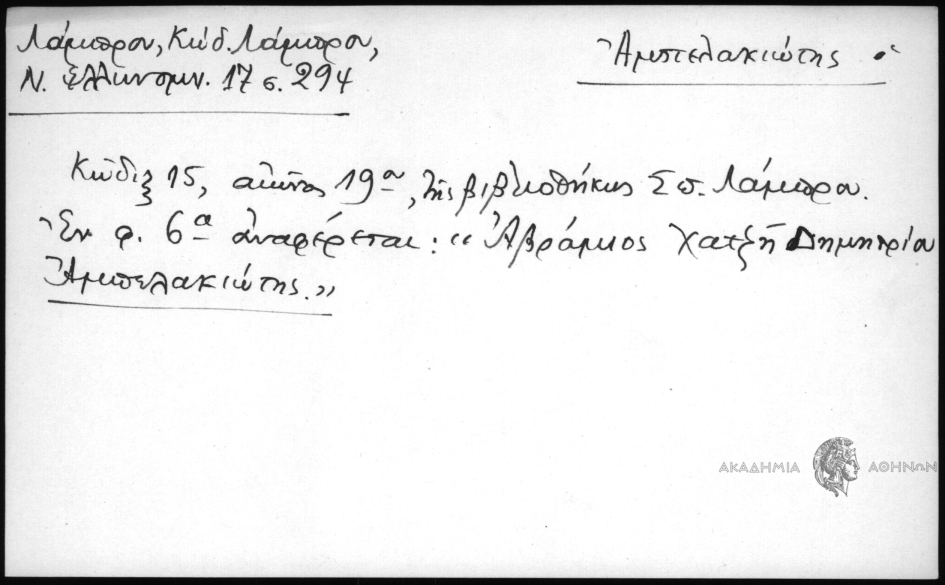 Λάμπρου, Κώδ. Λάμπρου,
Ν. Ἑλληνομν. 17 σ. 294
Ἀμπελακιώτης
Κῶδιξ 15, αἰῶνος 19ου, τῆς βιβλιοθήκης Σπ. Λάμπρου.
Ἐν φ. 6α ἀναφέρεται: «Ἀβράμιος Χατζῆ Δημητρίου
Ἀμπελακιώτης.»
ΑΚΑΔΗΜΙΑ ΑΘΗΝΩΝ